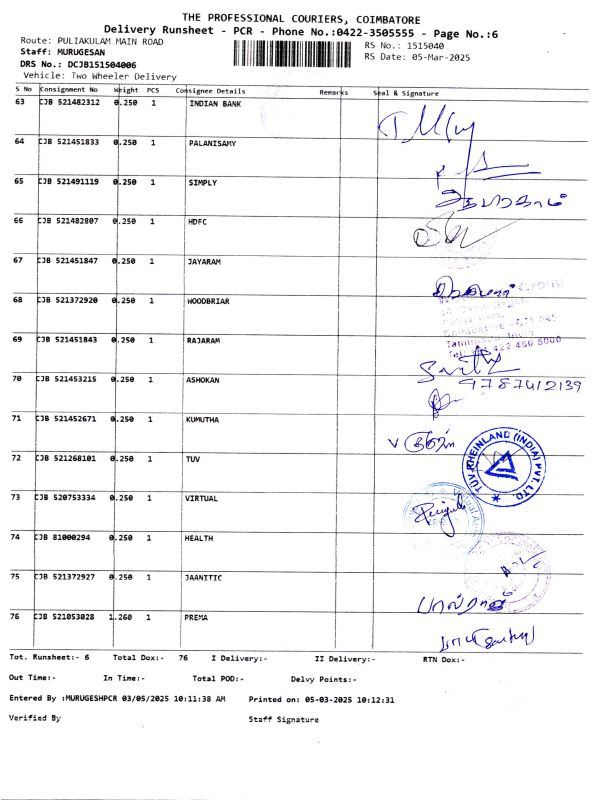 THE PROFESSIONAL COURIERS, COIMBATORE
Delivery Runsheet - PCR - Phone No.:0422-3505555 - Page No.:6
Route: PULIAKULAM MAIN ROAD
RS No.: 1515040
Staff: MURUGESAN
RS Date: 05-Mar-2025
DRS No.: DCJB151504006
Vehicle: Two Wheeler Delivery
S No Consignment No Weight PCS Consignee Details Remarks Seal & Signature
63 CJB 521482312 0.250 1 INDIAN BANK
64 CJB 521451833 0.250 1 PALANISAMY
65 CJB 521491119 0.250 1 SIMPLY
66 CJB 521482807 0.250 1 HDFC
67 CJB 521451847 0.250 1 JAYARAM
68 CJB 521372920 0.250 1 WOODBRIAR
69 CJB 521451843 0.250 1 RAJARAM
70 CJB 521453215 0.250 1 ASHOKAN
9787412139
71 CJB 521452671 0.250 1 KUMUTHA
72 CJB 521268101 0.250 1 TUV
TUV RHEINLAND (INDIA) PVT. LTD.
73 CJB 520753334 0.250 1 VIRTUAL
74 CJB 81000294 0.250 1 HEALTH
75 CJB 521372927 0.250 1 JAANITIC
76 CJB 521053028 1.260 1 PREMA
Tot. Runsheet:- 6 Total Dox:- 76 I Delivery:- II Delivery:- RTN Dox:-
Out Time:- In Time:- Total POD:- Delvy Points:-
Entered By :MURUGESHPCR 03/05/2025 10:11:38 AM Printed on: 05-03-2025 10:12:31
Verified By Staff Signature